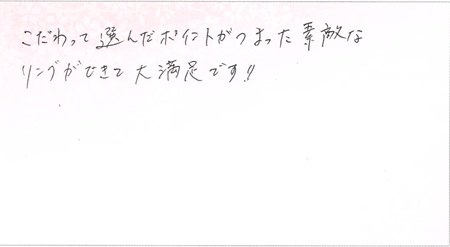 こだわって選んだポイントがつまった素敵な
リングができて大満足です!!